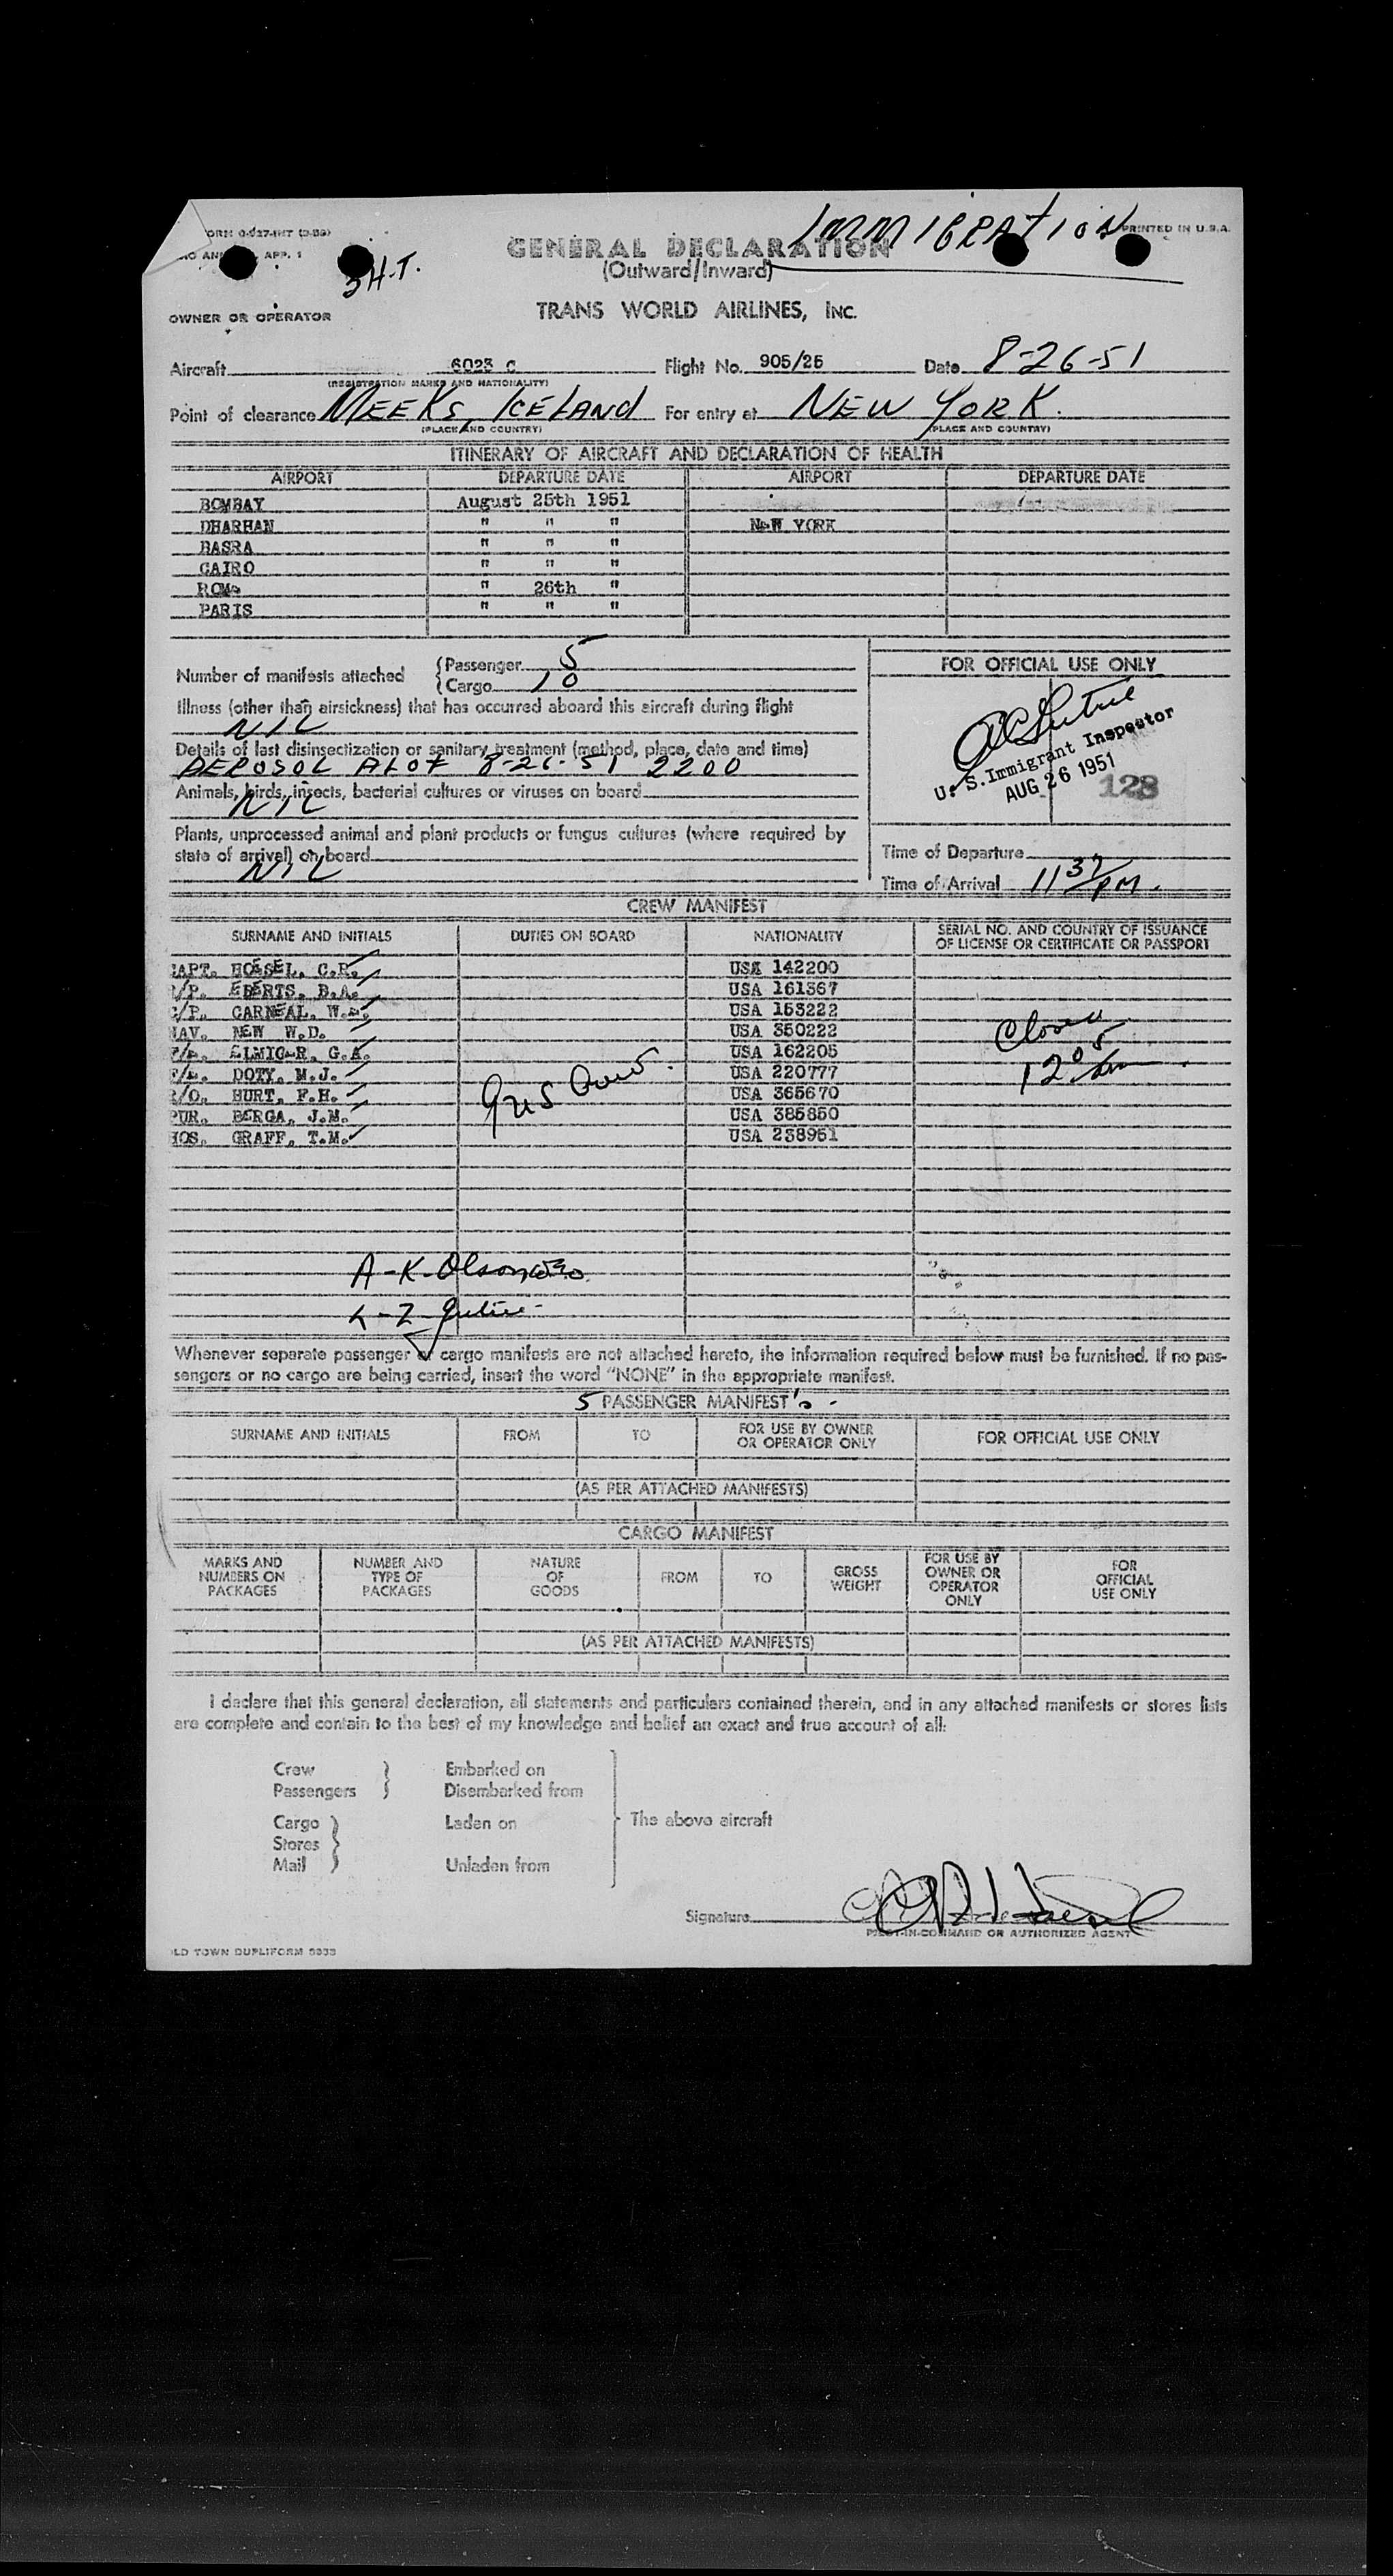 ORM 0-527-INT
PRINTED IN U.S.A.
APP. 1
IMMIGRATION
GENERAL DECLARATION
(Outward/Inward)
3 H.T.
OWNER OR OPERATOR
TRANS WORLD AIRLINES, INC.
Aircraft 6023 C Flight No. 905/25 Date 8-26-51
(REGISTRATION MARKS AND NATIONALITY)
Point of clearance MEEKS, ICELAND For entry at NEW YORK.
(PLACE AND COUNTRY) (PLACE AND COUNTRY)
ITINERARY OF AIRCRAFT AND DECLARATION OF HEALTH
AIRPORT DEPARTURE DATE AIRPORT DEPARTURE DATE
BOMBAY August 25th 1951
DHARHAN " " " NEW YORK
BASRA " " "
CAIRO " " "
ROME " 26th "
PARIS " " "
Number of manifests attached {Passenger 5
{Cargo 10
FOR OFFICIAL USE ONLY
Illness (other than airsickness) that has occurred aboard this aircraft during flight
NIL
Details of last disinsectization or sanitary treatment (method, place, date and time)
AEROSOL ALOF 8-26-51 2200
Animals, birds, insects, bacterial cultures or viruses on board
NIL
U. S. Immigrant Inspector
AUG 26 1951
128
Plants, unprocessed animal and plant products or fungus cultures (where required by
state of arrival) on board
NIL
Time of Departure
Time of Arrival 11 37 PM.
CREW MANIFEST
SURNAME AND INITIALS DUTIES ON BOARD NATIONALITY SERIAL NO. AND COUNTRY OF ISSUANCE
OF LICENSE OR CERTIFICATE OR PASSPORT
CAPT. HOESSEL, C.R. USA 142200
/P. EBERTS, B.A. USA 161367
C/P. CARNEAL, W.E. USA 153222
NAV. NEW W.D. USA 350222
F/E. ELMIGER, G.A. USA 162205
F/E. DOTY, M.J. USA 220777
R/O. HURT, F.H. USA 365670
PUR. BERGA, J.M. USA 385850
HOS. GRAFF, T.M. USA 238951
Closed
12 05
A-K-Olson
L-Z
Whenever separate passenger or cargo manifests are not attached hereto, the information required below must be furnished. If no pas-
sengers or no cargo are being carried, insert the word "NONE" in the appropriate manifest.
5 PASSENGER MANIFEST's -
SURNAME AND INITIALS FROM TO FOR USE BY OWNER
OR OPERATOR ONLY FOR OFFICIAL USE ONLY
(AS PER ATTACHED MANIFESTS)
CARGO MANIFEST
MARKS AND
NUMBERS ON
PACKAGES NUMBER AND
TYPE OF
PACKAGES NATURE
OF
GOODS FROM TO GROSS
WEIGHT FOR USE BY
OWNER OR
OPERATOR
ONLY FOR
OFFICIAL
USE ONLY
(AS PER ATTACHED MANIFESTS)
I declare that this general declaration, all statements and particulars contained therein, and in any attached manifests or stores lists
are complete and contain to the best of my knowledge and belief an exact and true account of all:
Crew Embarked on
Passengers Disembarked from
Cargo Laden on The above aircraft
Stores
Mail Unladen from
Signature
PILOT-IN-COMMAND OR AUTHORIZED AGENT
LD TOWN DUPLIFORM 5933